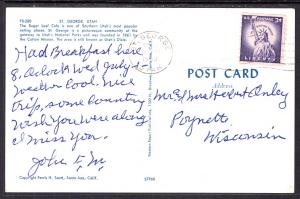 FS-380
ST. GEORGE, UTAH
The Sugar Loaf Cafe is one of Southern Utah's most popular
eating places. St. George is a picturesque community at the
gateway to Utah's National Parks and was founded in 1861 by
the Cotton Mission. The area is still known as Utah's Dixie.
Had Breakfast here
8. Aclock Wed July 4
weather cool. Nice
trip, some country
wish you were along
I miss you.
John
Copyright Ferris H. Scott, Santa Ana, Calif.
S7968
ST GEORGE
U.S. POSTAGE
3¢
LIBERTY
POST CARD
Address
Mr & Mrs Herbert Onley
Poynette
Wisconsin